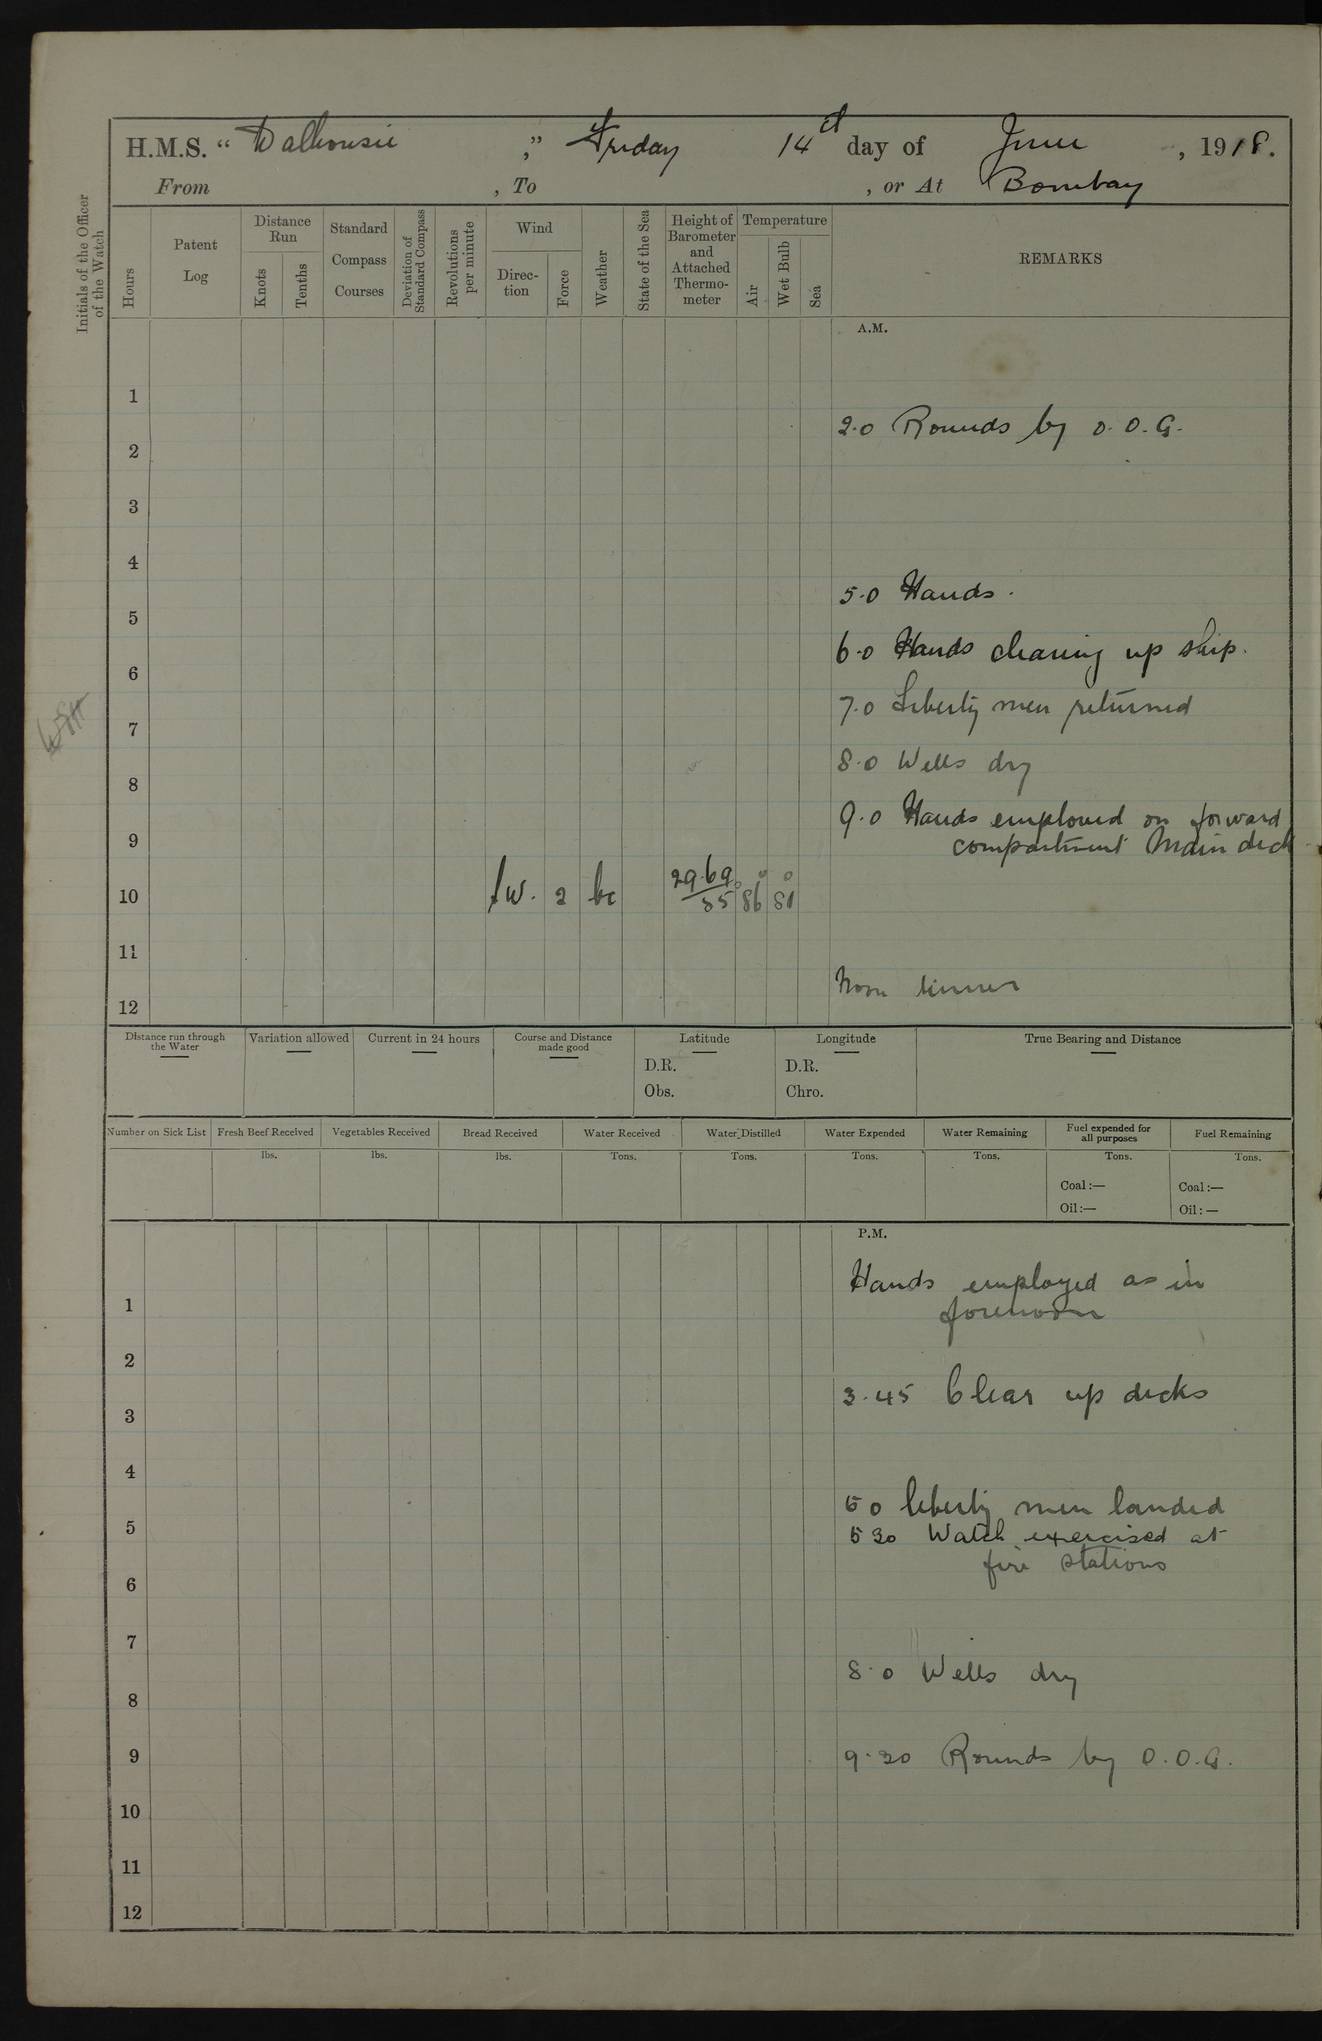 H.M.S. “ Dalhousie ,” Friday 14th day of June , 1918.
From , To , or At Bombay
Initials of the Officer of the Watch
Hours
Patent Log
Distance Run
Knots
Tenths
Standard Compass Courses
Deviation of Standard Compass
Revolutions per minute
Wind
Direc-tion
Force
Weather
State of the Sea
Height of Barometer and Attached Thermo-meter
Temperature
Air
Wet Bulb
Sea
REMARKS
A.M.
1
2.0 Rounds by O.O.G.
2
3
4
5.0 Hands.
5
6.0 Hands cleaning up ship.
6
7.0 Liberty men returned
7
8.0 Wells dry
8
9.0 Hands employed on forward
9
compartment Main deck
10 W. 2 bc 29.69 85° 86° 81°
11
Noon Dinner
12
Distance run through the Water
Variation allowed
Current in 24 hours
Course and Distance made good
Latitude
D.R.
Obs.
Longitude
D.R.
Chro.
True Bearing and Distance
Number on Sick List
Fresh Beef Received
lbs.
Vegetables Received
lbs.
Bread Received
lbs.
Water Received
Tons.
Water Distilled
Tons.
Water Expended
Tons.
Water Remaining
Tons.
Fuel expended for all purposes
Tons.
Coal:—
Oil:—
Fuel Remaining
Tons.
Coal:—
Oil:—
P.M.
Hands employed as in
1
forenoon
2
3.45 Clear up decks
3
4
5 0 liberty men landed
5
5 30 Watch exercised at
fire stations
6
7
8.0 Wells dry
8
9.30 Rounds by O.O.G.
9
10
11
12